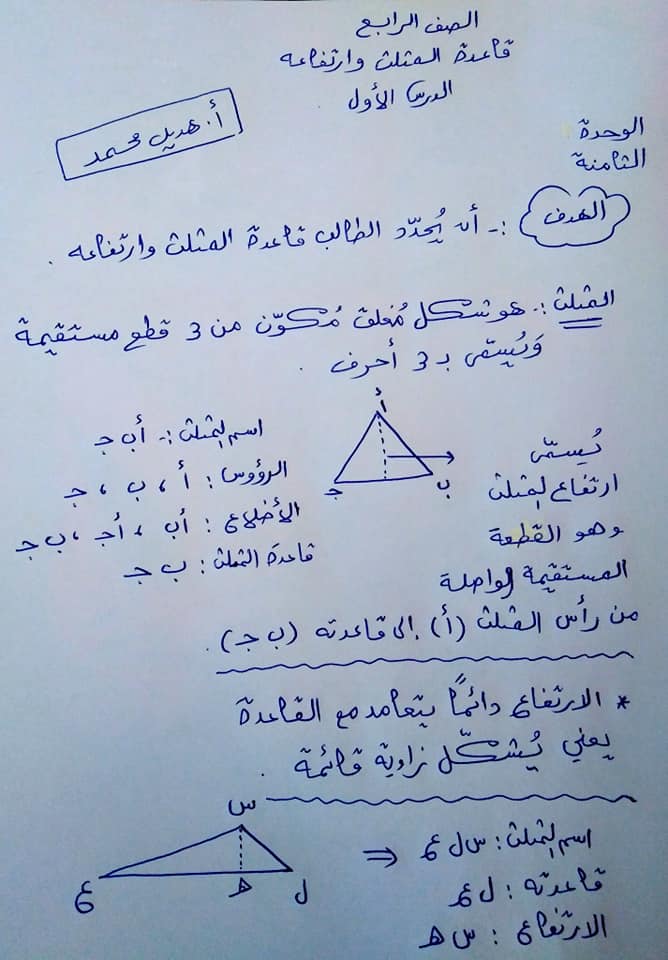 الصف الرابع
قاعدة المثلث وارتفاعه
الدرس الأول
أ. هديل محمد
الوحدة
الثامنة
الهدف :- أن يُحدّد الطالب قاعدة المثلث وارتفاعه .
المثلث :- هو شكل مُغلق مُكوّن من 3 قطع مستقيمة
وَيُسمّى بـ 3 أحرف .
أ
ب
جـ
اسم المثلث :- أ ب جـ
الرؤوس : أ ، ب ، جـ
الأضلاع : أب ، أجـ ، ب جـ
قاعدة المثلث : ب جـ
يُسمّى
ارتفاع المثلث
وهو القطعة
المستقيمة الواصلة
من رأس المثلث (أ) إلى قاعدته (ب جـ) .
* الارتفاع دائمًا يتعامد مع القاعدة
يعني يُشكّل زاوية قائمة .
س
ع
هـ
ل
اسم المثلث : س ل ع
قاعدته : ل ع
الارتفاع : س هـ